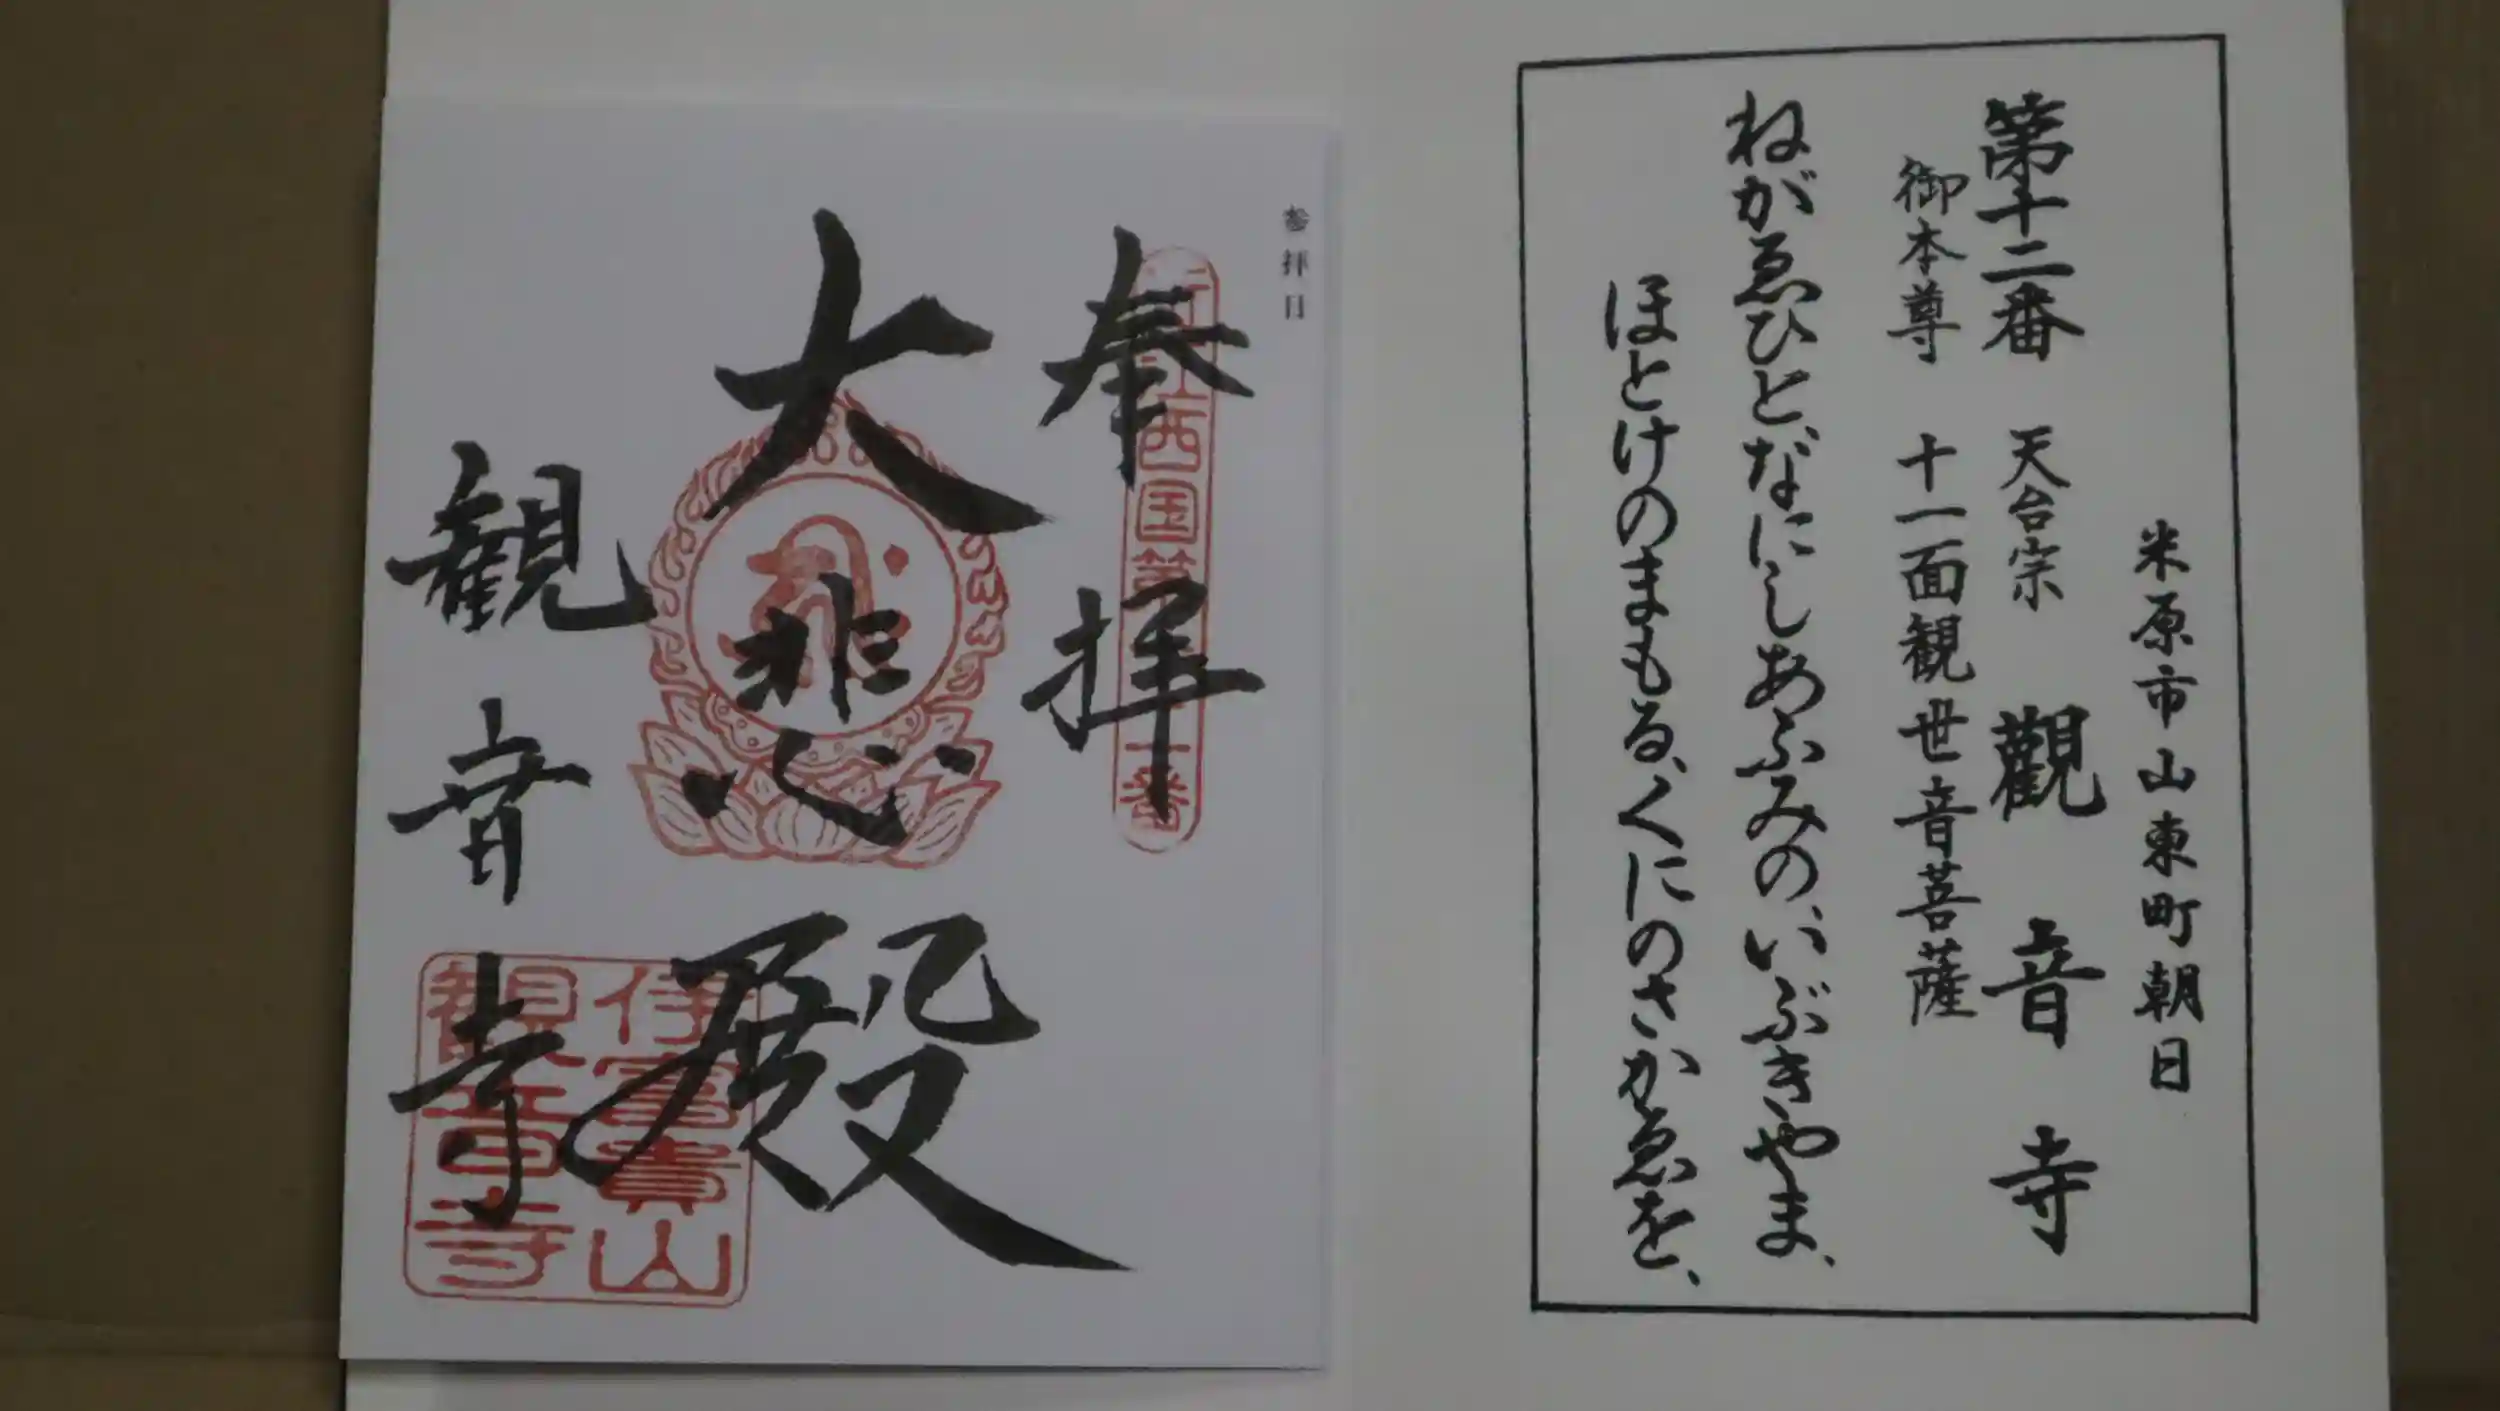 米原市山東町朝日
第十二番 天台宗 觀音寺
御本尊 十一面観世音菩薩
ねがゑひと、なにしあふみの、いぶきやま、
ほとけのまもる、くにのさかゑを、
参拝日
奉拝
近江西国第十二番
大悲殿
観音寺
伊富貴山
観音寺